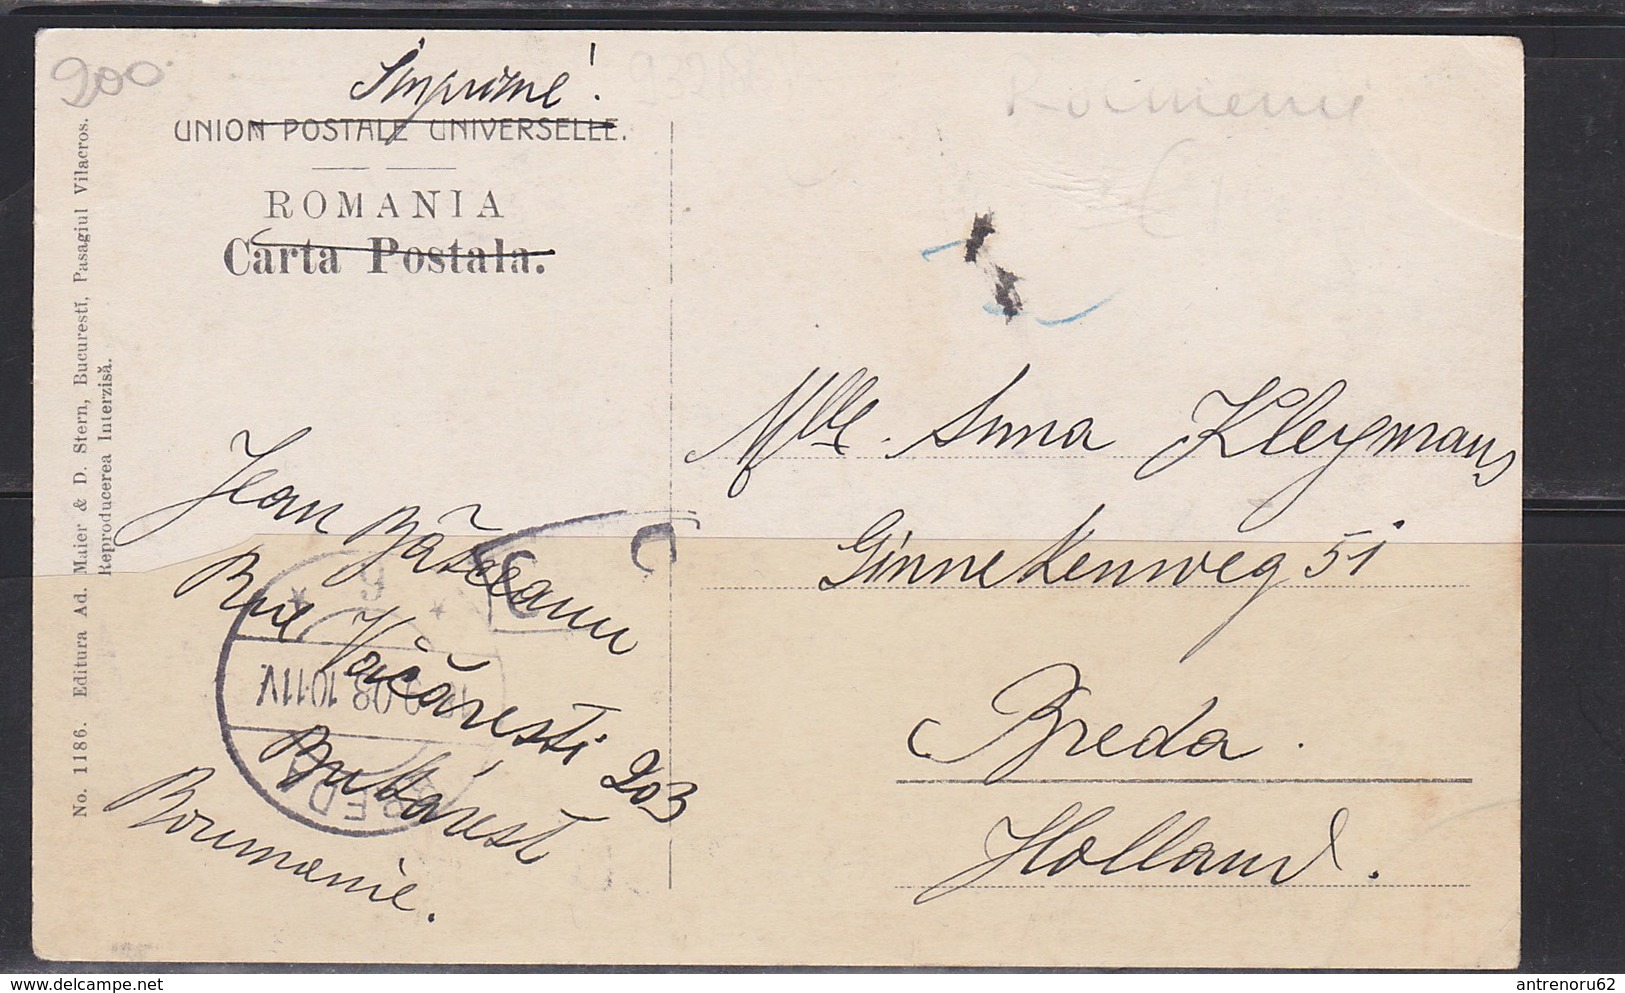 200
Imprimé!
UNION POSTALE UNIVERSELLE.
ROMANIA
Carta Postala.
No. 1186. Editura Ad. Maier & D. Stern, Bucuresti, Pasagiul Vilacros.
Reproducerea Interzisă.
Roumenie
Jean
Rue Văcăresti 203
Bukarest
Roumanie.
BREDA
9.08 10-11V
Mlle. Anna Kleymans
Ginnekenweg 51
Breda.
Holland.
delcampe.net
antrenoru62